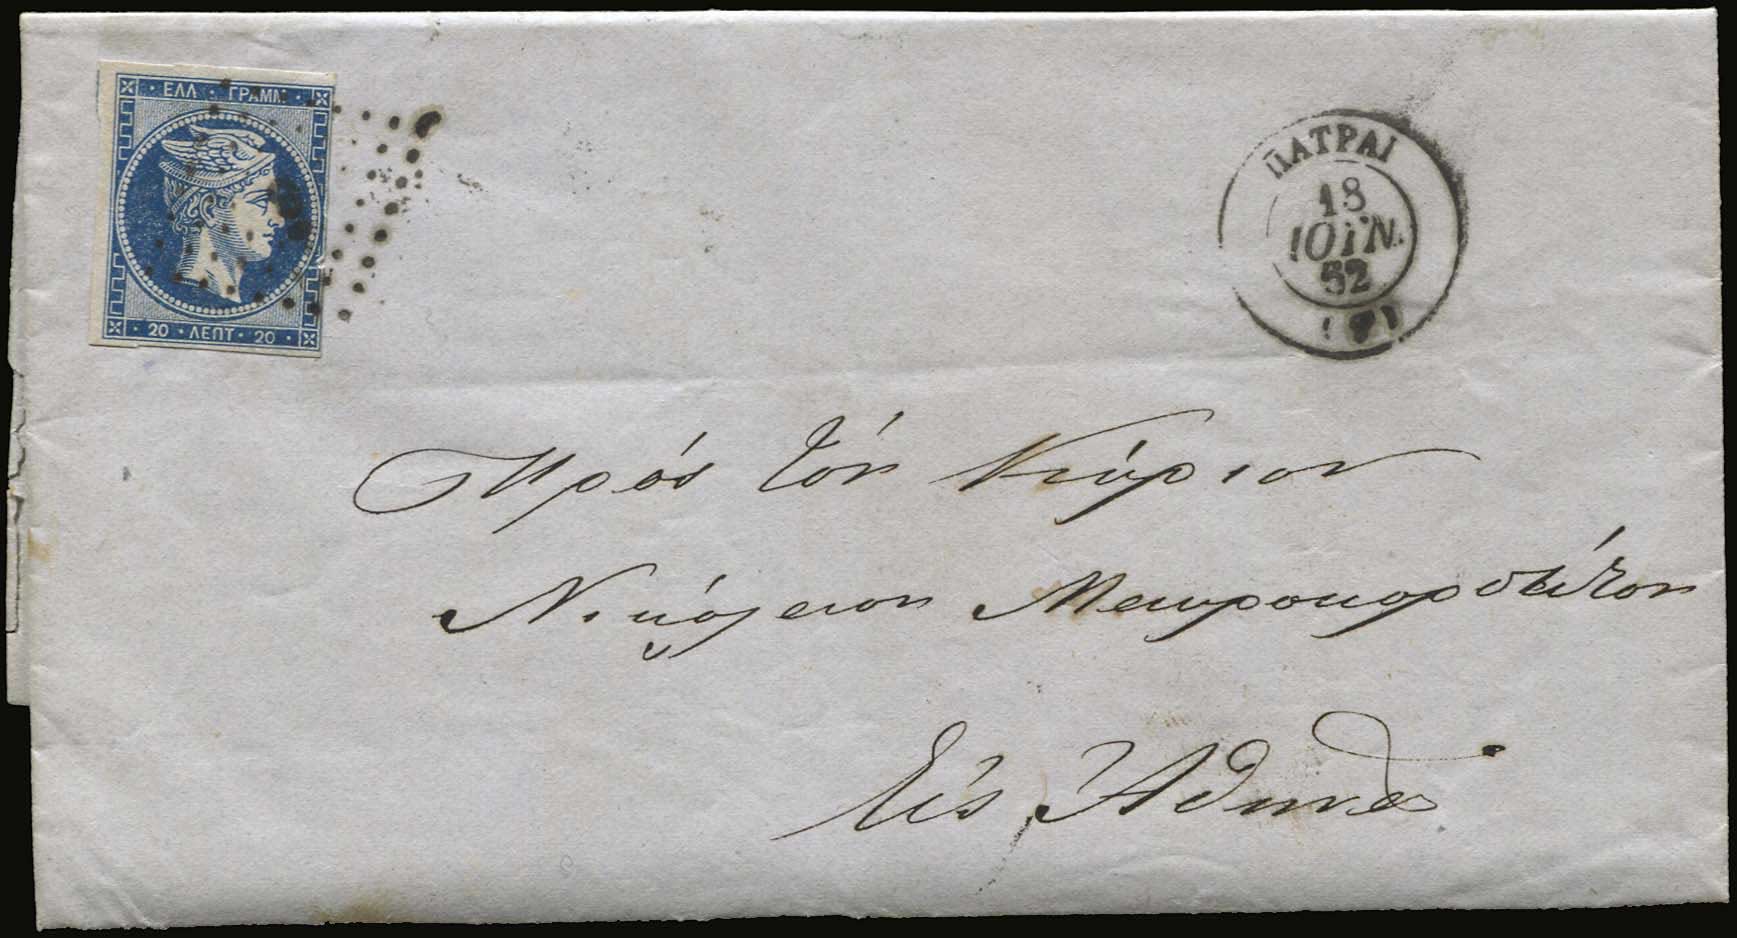 · ΕΛΛ · ΓΡΑΜΜ ·
· 20 · ΛΕΠΤ · 20 ·
ΠΑΤΡΑΙ
18
ΙΟΥΝ.
52
Πρός τόν Κύριον
Νικόλαον Μαυροκορδάτον
Εἰς Ἀθήνας